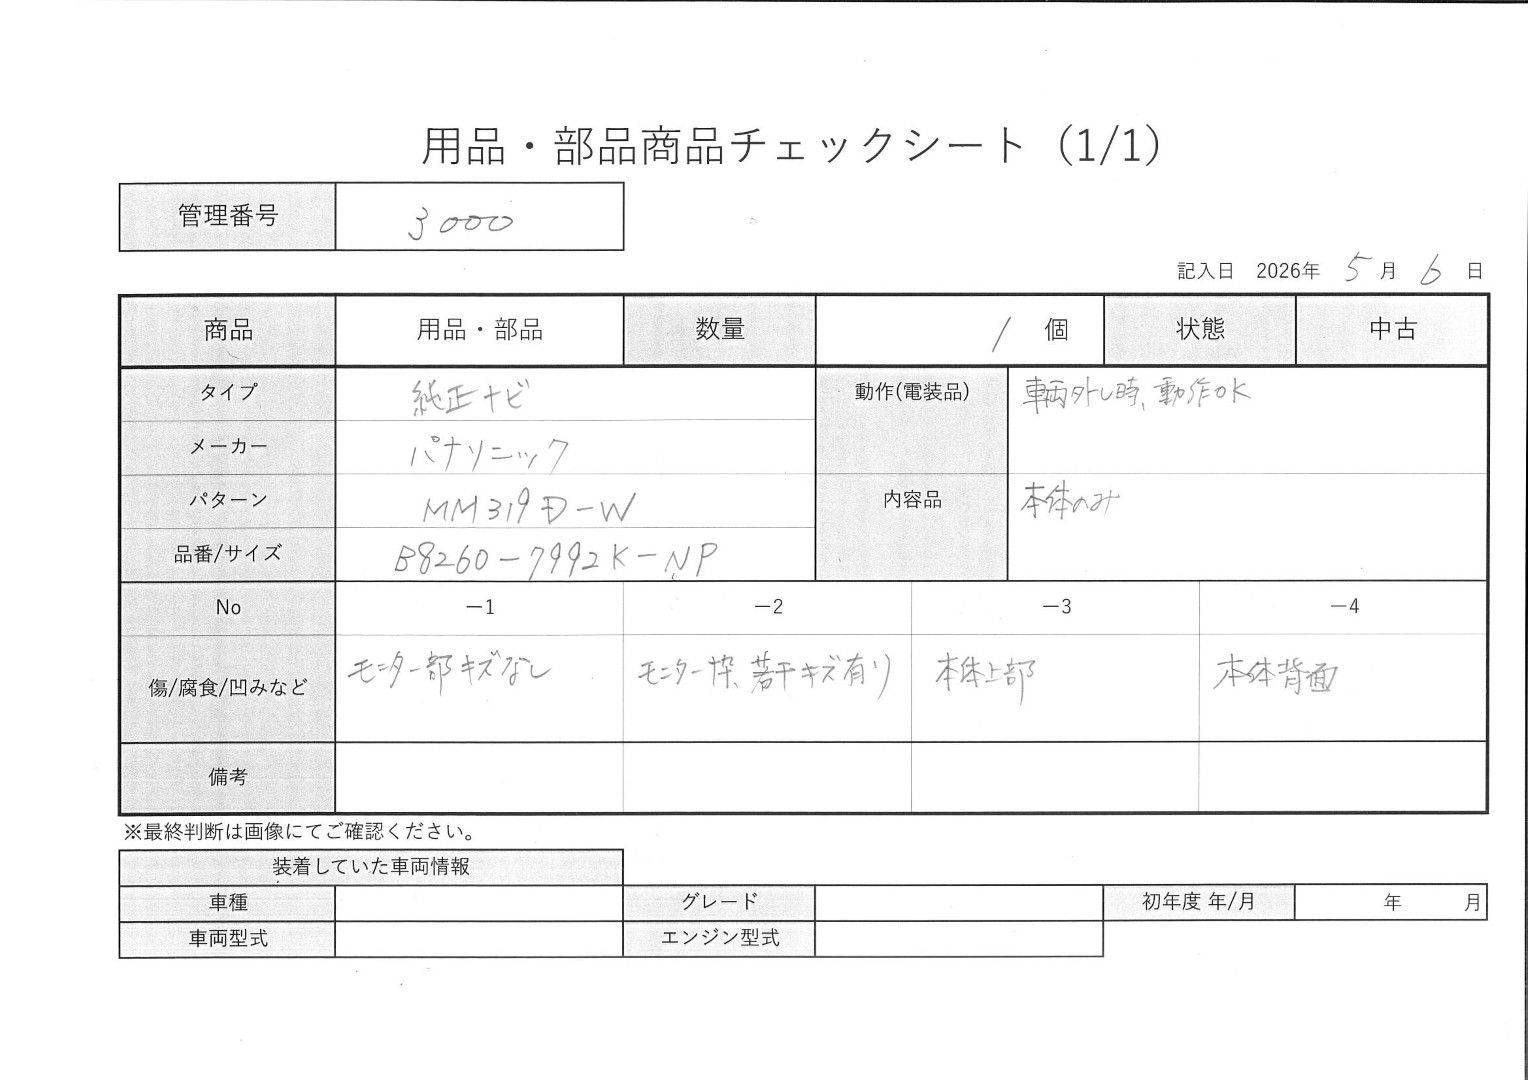 用品・部品商品チェックシート（1/1）
管理番号 3000
記入日 2026年 5月 6日
商品 用品・部品 数量 1個 状態 中古
タイプ 純正ナビ 動作(電装品) 車両外し時、動作OK
メーカー パナソニック
パターン MM319D-W 内容品 本体のみ
品番/サイズ B8260-7992K-NP
No －1 －2 －3 －4
傷/腐食/凹みなど モニター部キズなし モニター枠、若干キズ有り 本体上部 本体背面
備考
※最終判断は画像にてご確認ください。
装着していた車両情報
車種 グレード 初年度 年/月 年 月
車両型式 エンジン型式